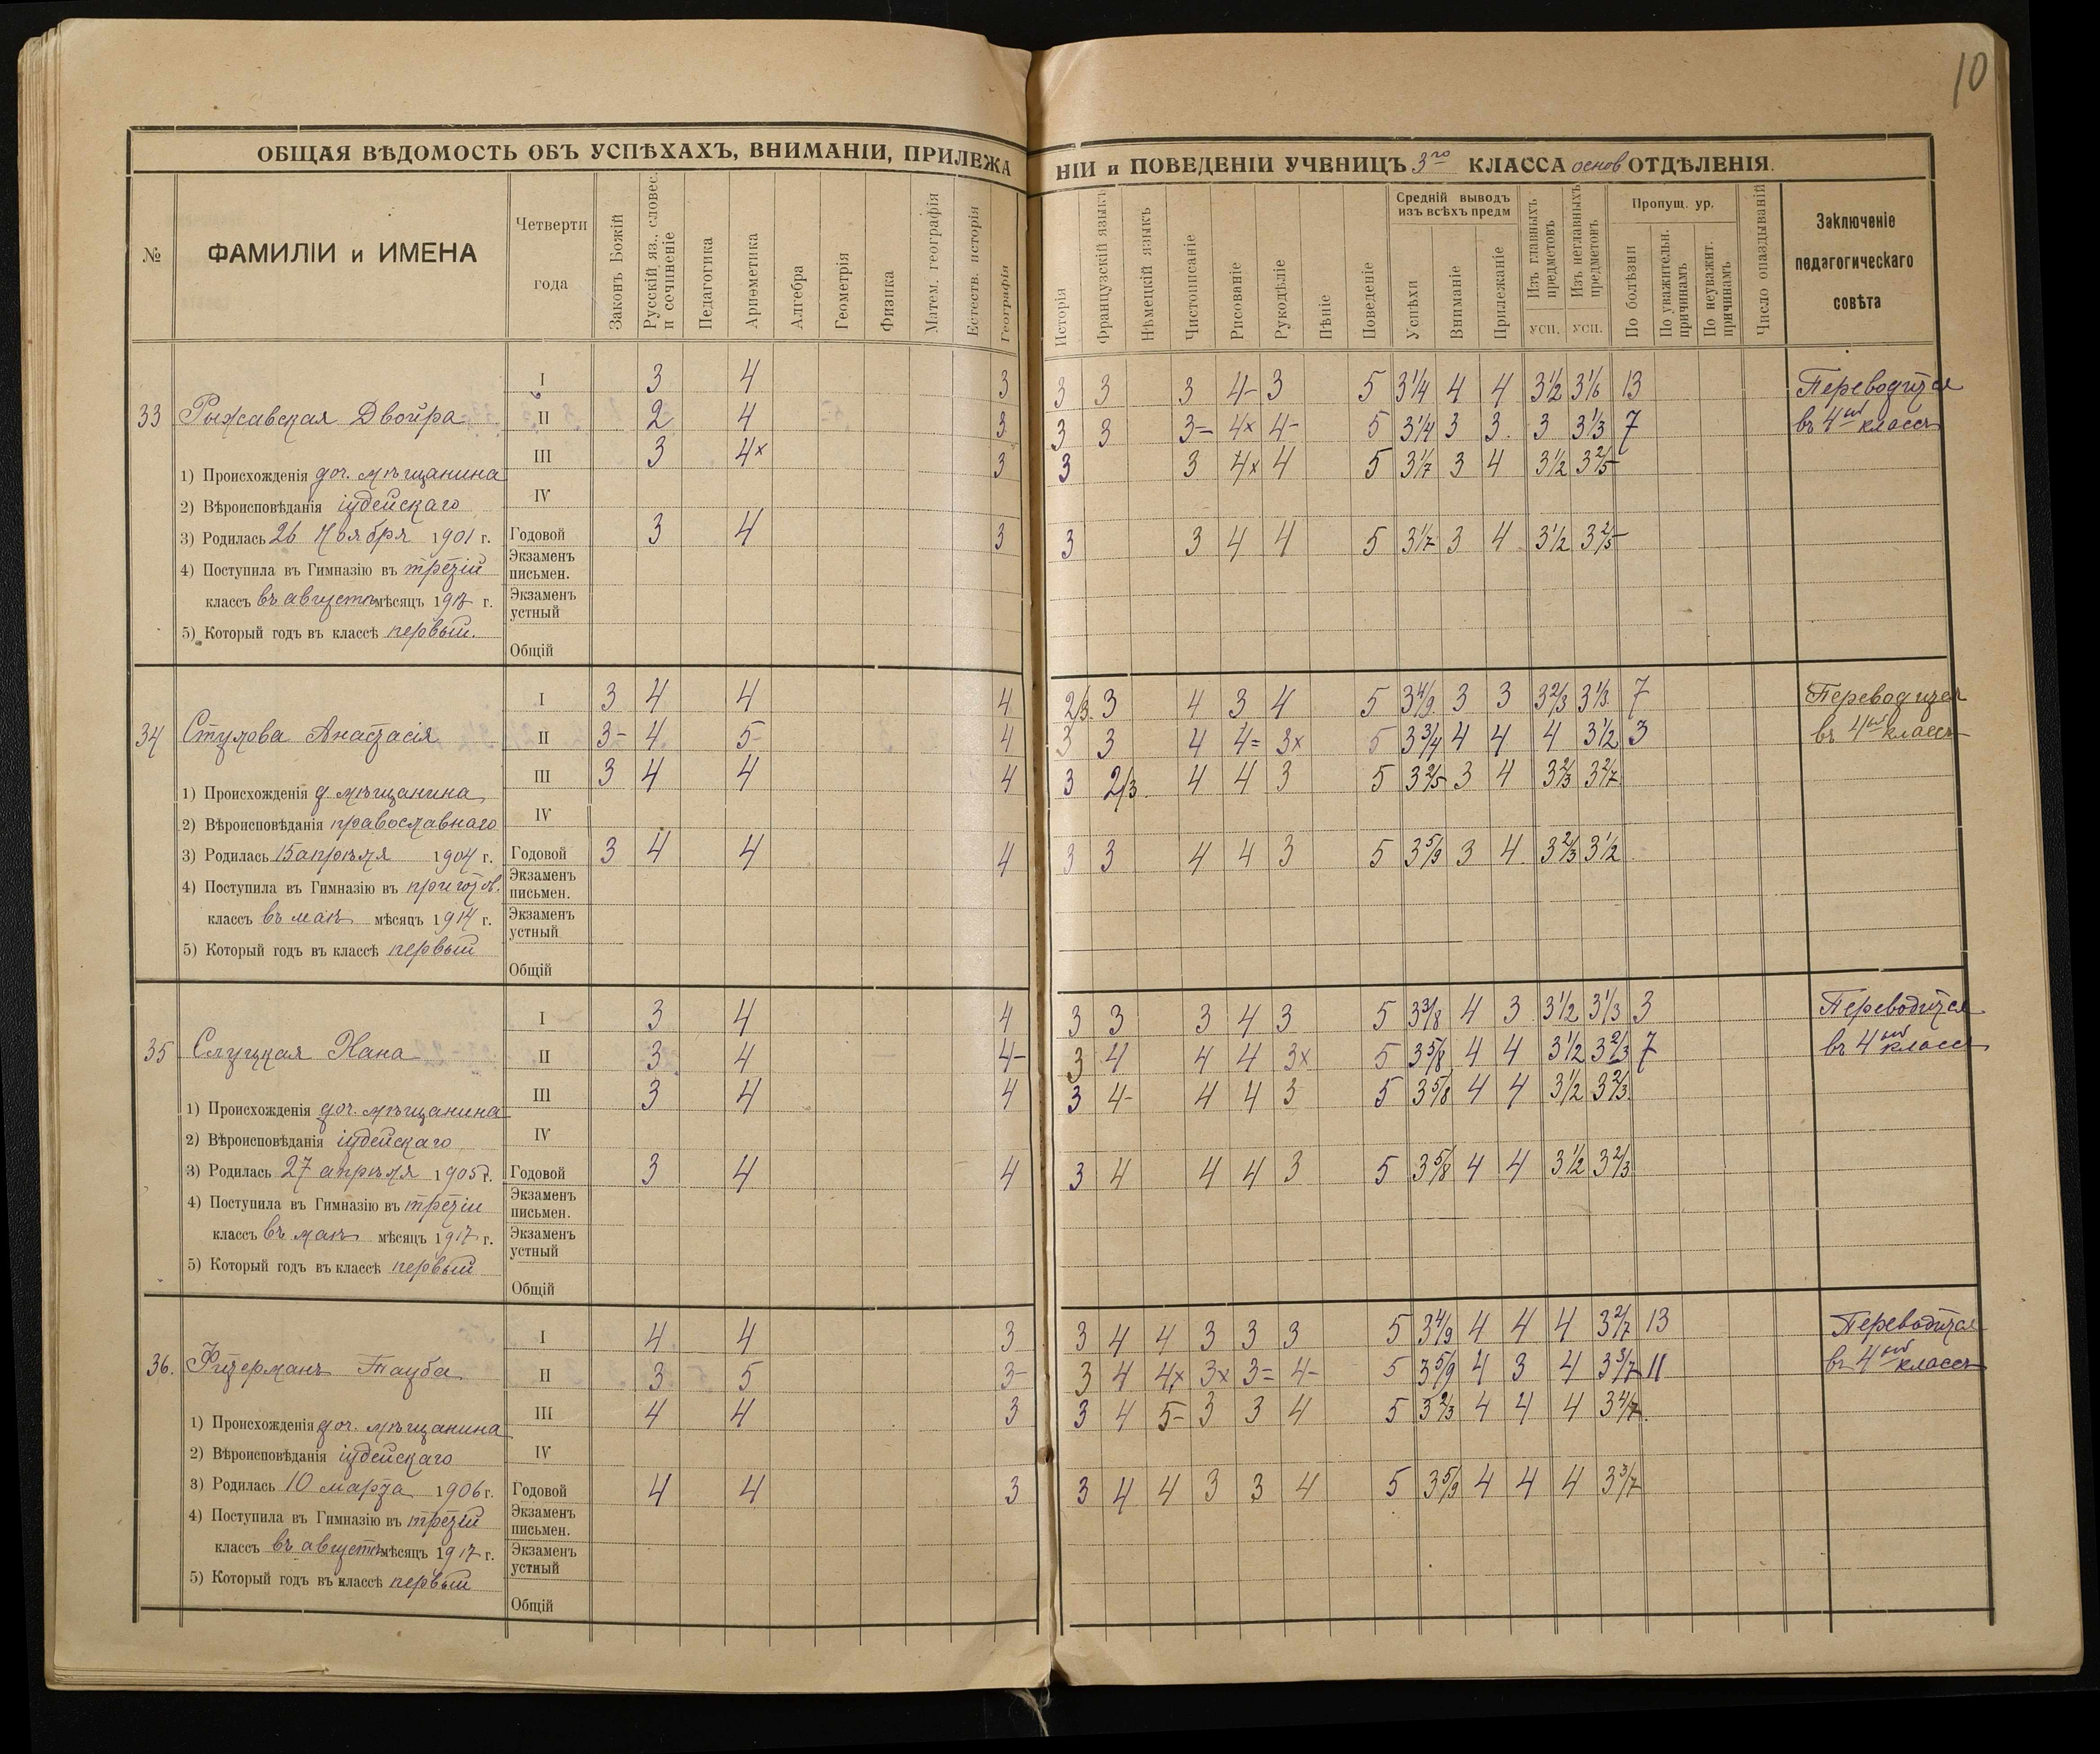 10
ОБЩАЯ ВѢДОМОСТЬ ОБЪ УСПѢХАХЪ, ВНИМАНІИ, ПРИЛЕЖАНІИ и ПОВЕДЕНІИ УЧЕНИЦЪ 3го КЛАССА основ ОТДѢЛЕНІЯ.
№ ФАМИЛІИ и ИМЕНА Четверти года Законъ Божій Русскій яз., словес. и сочиненіе Педагогика Ариѳметика Алгебра Геометрія Физика Матем. географія Естеств. исторія Географія Исторія Французскій языкъ Нѣмецкій языкъ Чистописаніе Рисованіе Рукодѣліе Пѣніе Поведеніе Средній выводъ изъ всѣхъ предм Успѣхи Вниманіе Прилежаніе Изъ главныхъ предметовъ УСП. Изъ неглавныхъ предметовъ УСП. Пропущ. ур. По болѣзни По уважительн. причинамъ По неуважит. причинамъ Число опаздываній Заключеніе педагогическаго совѣта
I 3 4 3 3 3 3 4- 3 5 3 1/4 4 4 3 1/2 3 1/6 13 Переводится
33 Рыжавская Двойра II 2 4 3 3 3 3= 4x 4- 5 3 1/4 3 3 3 3 1/3 7 въ 4ый классъ
III 3 4x 3 3 3 4x 4 5 3 1/7 3 4 3 1/2 3 2/5
1) Происхожденія доч. мѣщанина
2) Вѣроисповѣданія іудейскаго IV
3) Родилась 26 Ноября 1901 г. Годовой 3 4 3 3 3 4 4 5 3 1/7 3 4 3 1/2 3 2/5
4) Поступила въ Гимназію въ третій Экзаменъ письмен.
классъ въ августѣ мѣсяцъ 1917 г. Экзаменъ устный
5) Который годъ въ классѣ первый. Общій
I 3 4 4 4 2/3 3 4 3 4 5 3 4/9 3 3 3 2/3 3 1/3 7 Переводится
34 Стулова Анастасія II 3- 4 5- 4 3 3 4 4= 3x 5 3 3/4 4 4 4 3 1/2 3 въ 4ый классъ
III 3 4 4 4 3 2/3 4 4 3 5 3 2/5 3 4 3 2/3 3 2/7
1) Происхожденія д. мѣщанина
2) Вѣроисповѣданія православнаго IV
3) Родилась 15 апрѣля 1904 г. Годовой 3 4 4 4 3 3 4 4 3 5 3 5/9 3 4 3 2/3 3 1/2
4) Поступила въ Гимназію въ приготов. Экзаменъ письмен.
классъ въ маѣ мѣсяцъ 1914 г. Экзаменъ устный
5) Который годъ въ классѣ первый Общій
I 3 4 4 3 3 3 4 3 5 3 3/8 4 3 3 1/2 3 1/3 3 Переводится
35 Слуцкая Хана II 3 4 4- 3 4 4 4 3x 5 3 5/8 4 4 3 1/2 3 2/3 7 въ 4ый классъ
III 3 4 4 3 4- 4 4 3 5 3 5/8 4 4 3 1/2 3 2/3
1) Происхожденія доч. мѣщанина
2) Вѣроисповѣданія іудейскаго IV
3) Родилась 27 апрѣля 1905 г. Годовой 3 4 4 3 4 4 4 3 5 3 5/8 4 4 3 1/2 3 2/3
4) Поступила въ Гимназію въ третій Экзаменъ письмен.
классъ въ маѣ мѣсяцъ 1917 г. Экзаменъ устный
5) Который годъ въ классѣ первый Общій
I 4 4 3 3 4 4 3 3 3 5 3 4/9 4 4 4 3 2/7 13 Переводится
36. Фитерманъ Тауба II 3 5 3- 3 4 4x 3x 3= 4- 5 3 5/9 4 3 4 3 3/7 11 въ 4ый классъ
III 4 4 3 3 4 5= 3 3 4 5 3 2/3 4 4 4 3 4/7
1) Происхожденія доч. мѣщанина
2) Вѣроисповѣданія іудейскаго IV
3) Родилась 10 марта 1906 г. Годовой 4 4 3 3 4 4 3 3 4 5 3 5/9 4 4 4 3 3/7
4) Поступила въ Гимназію въ третій Экзаменъ письмен.
классъ въ августѣ мѣсяцъ 1917 г. Экзаменъ устный
5) Который годъ въ классѣ первый Общій